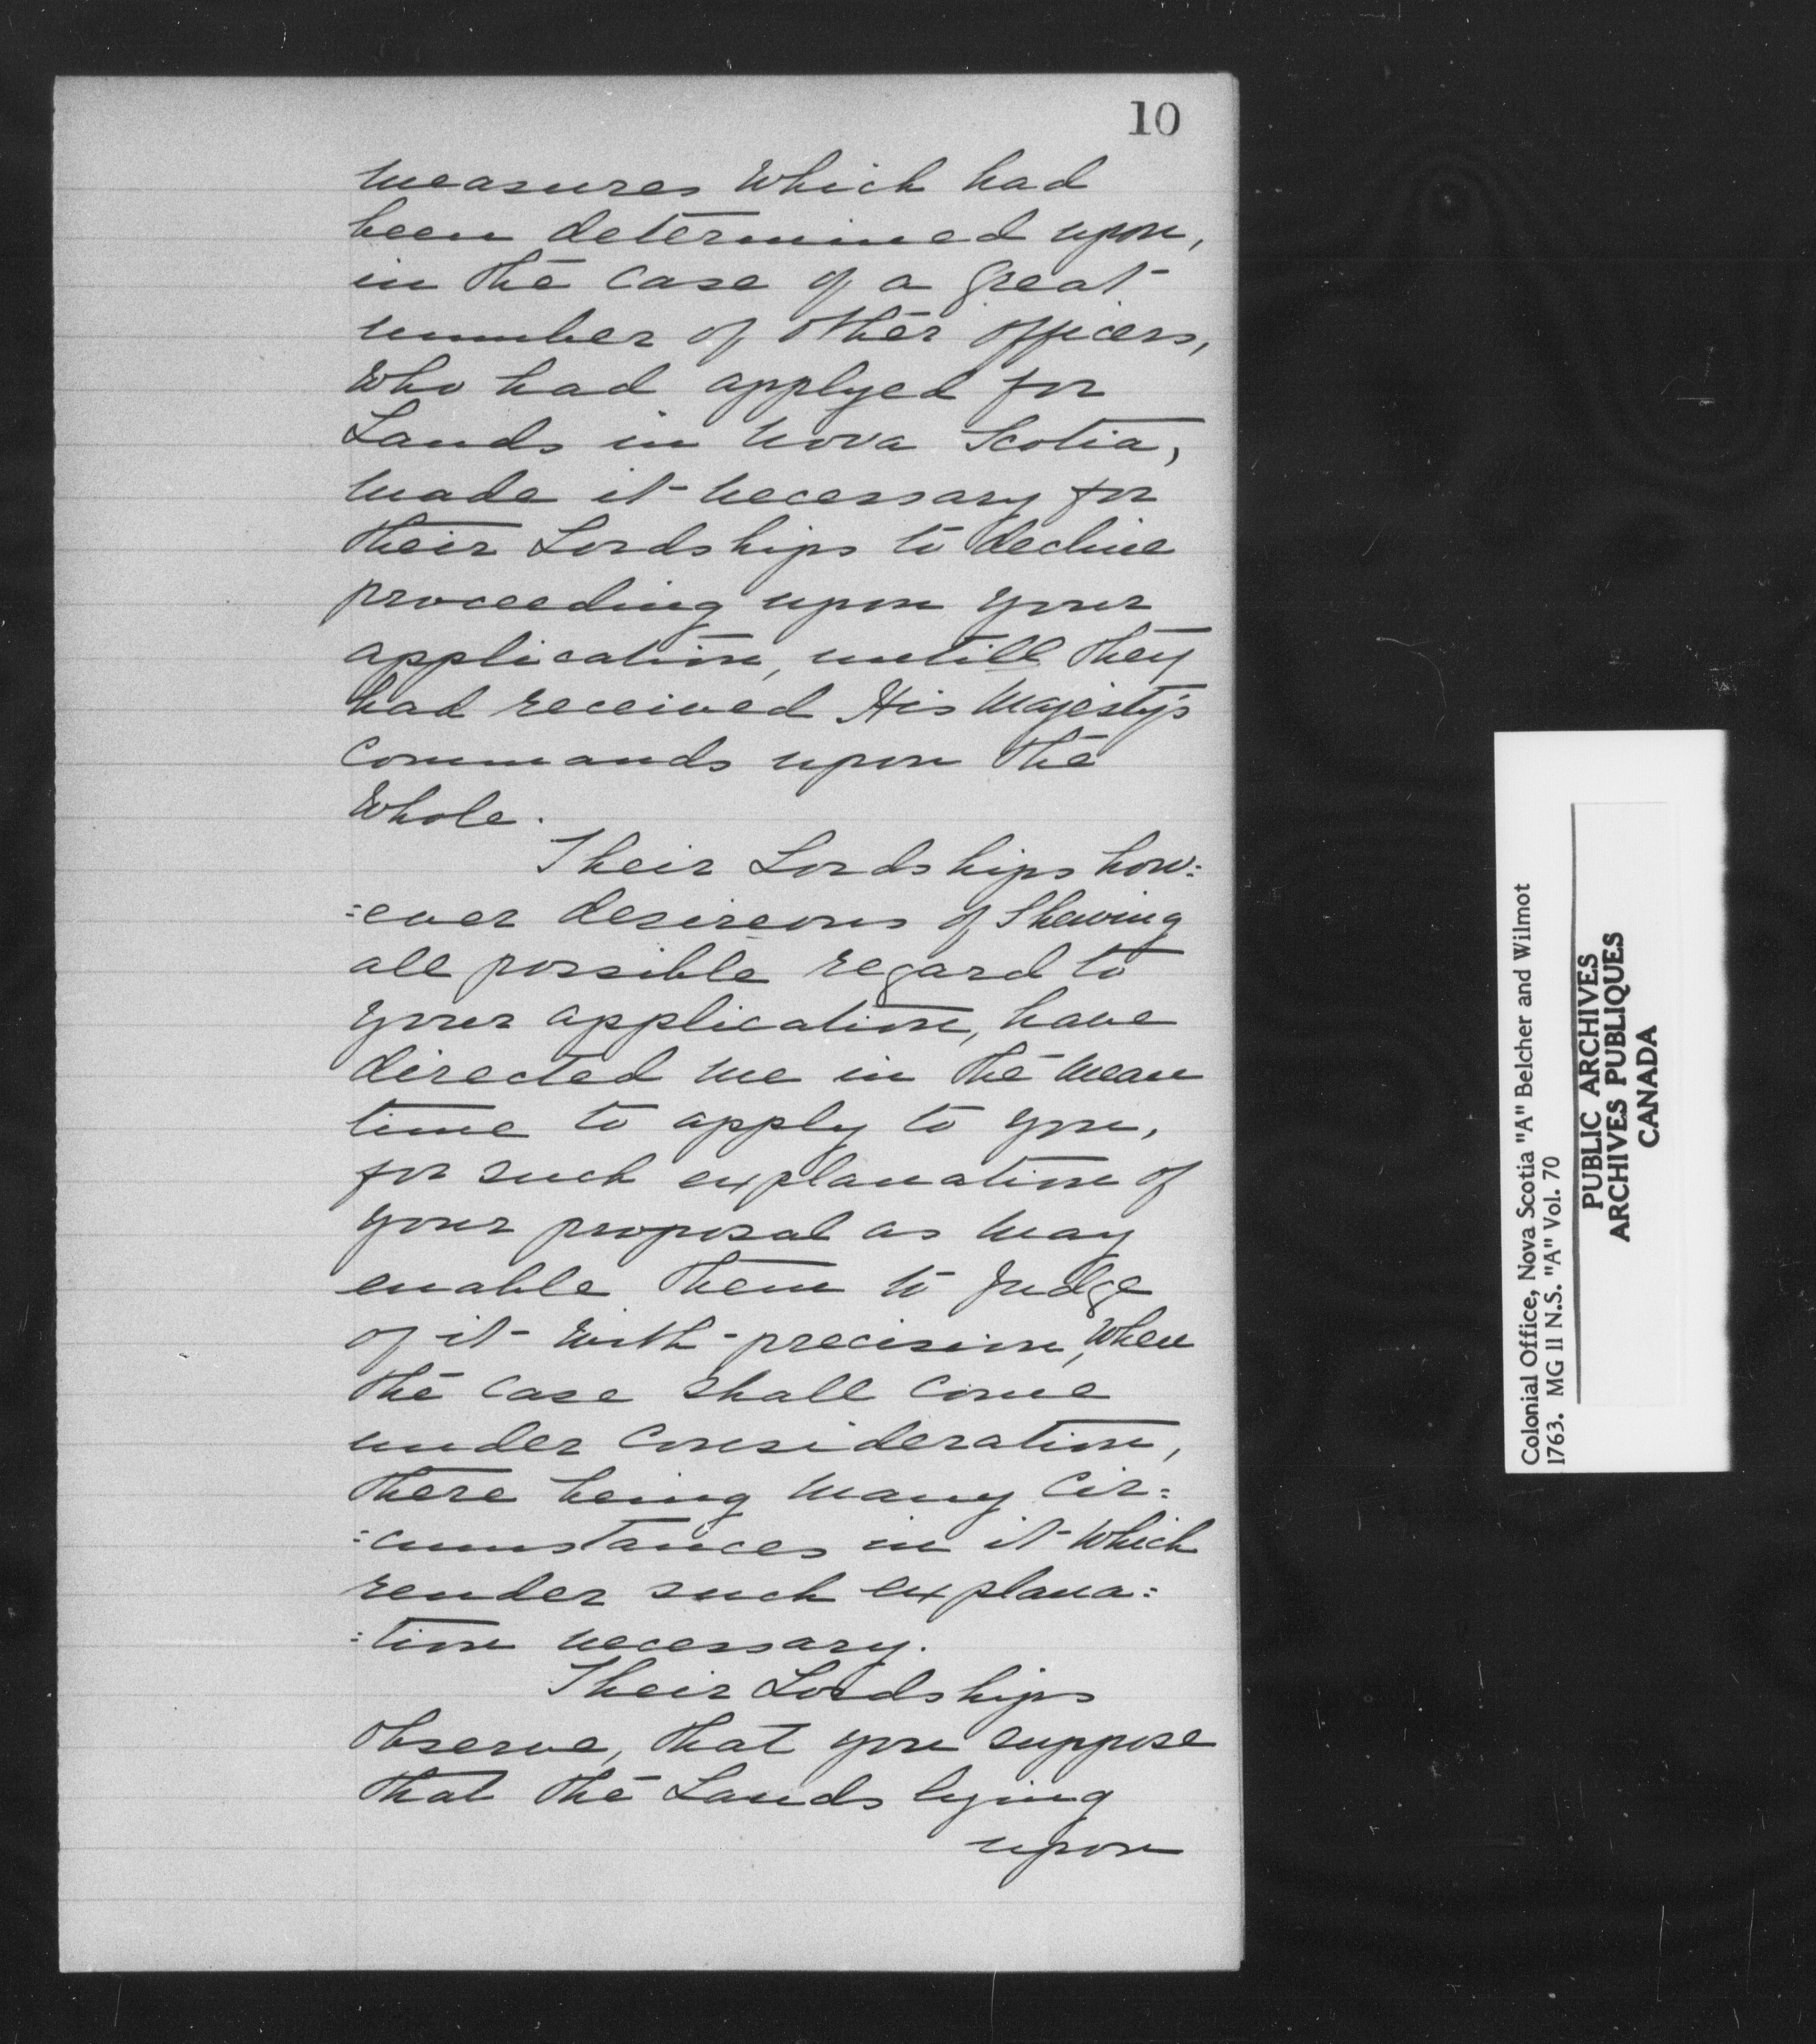 10
measures which had
been determined upon,
in the case of a great
number of other officers,
who had applyed for
Lands in Nova Scotia,
made it necessary for
their Lordships to decline
proceeding upon your
application, untill they
had received His Majesty's
Commands upon the
whole.
Their Lordships how:
:ever desireous of Shewing
all possible regard to
your application, have
directed me in the mean
time to apply to you,
for such explanation of
your proposal as may
enable them to Judge
of it with precision, when
the case shall come
under Consideration,
there being many Cir:
:cumstances in it which
render such explana:
:tion necessary.
Their Lordships
observe, that you suppose
that the Lands lying
upon
Colonial Office, Nova Scotia "A" Belcher and Wilmot
1763. MG II N.S. "A" Vol. 70
PUBLIC ARCHIVES
ARCHIVES PUBLIQUES
CANADA